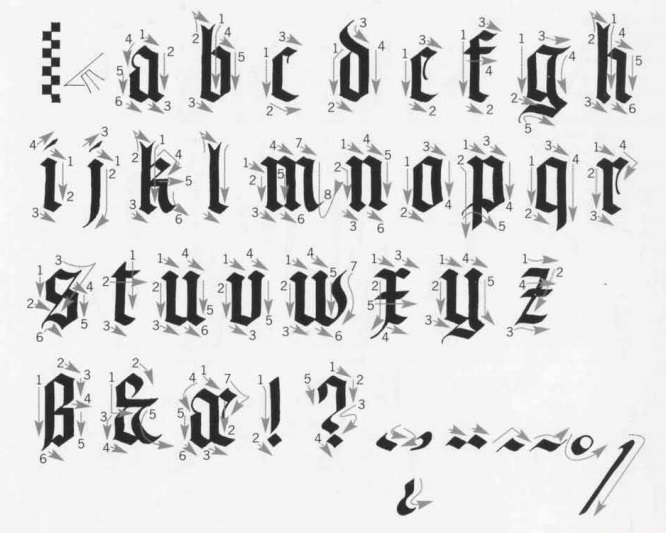 a b c d e f g h
i j k l m n o p q r
s t u v w x y z
ß & æ ! ?